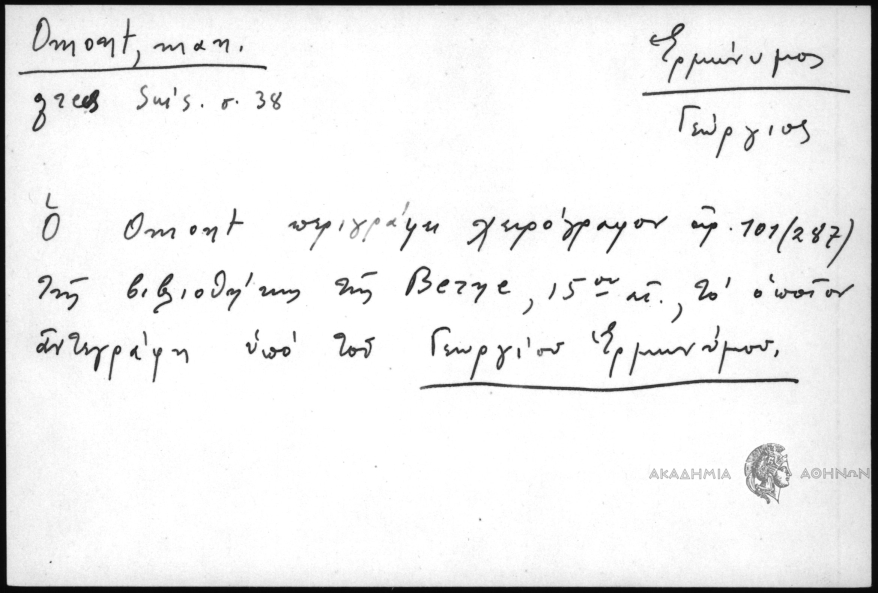 Omont, man.
grecs Suis. σ. 38
Ἑρμώνυμος
Γεώργιος
Ὁ Omont περιγράφει χειρόγραφον ἀρ. 101 (287)
τῆς βιβλιοθήκης τῆς Berne, 15ου αἰ., τὸ ὁποῖον
ἀντεγράφη ὑπὸ τοῦ Γεωργίου Ἑρμωνύμου.
ΑΚΑΔΗΜΙΑ ΑΘΗΝΩΝ